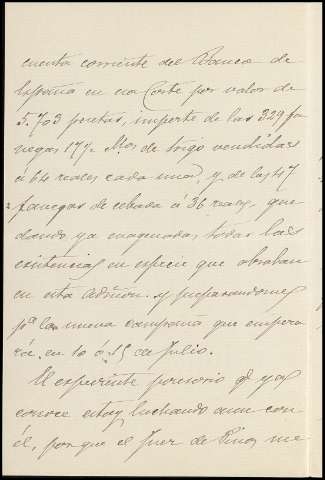 cuenta corriente del Banco de
España en esa Corte por valor de
5.703 pesetas, importe de las 329 fa
negas 17½ de trigo vendidas
á 64 reales cada una, y de las 47
fanegas de cebada á 36 reales, que
dando ya enagenadas todas las
existencias en especie que obraban
en esta Admón. y preparandonos
pª la nueva campaña que empeza
rá en 10 ó 15 de Julio.
El expediente posesorio q̃ ya
conoce estoy luchando aun con
él, porque el Juez de me